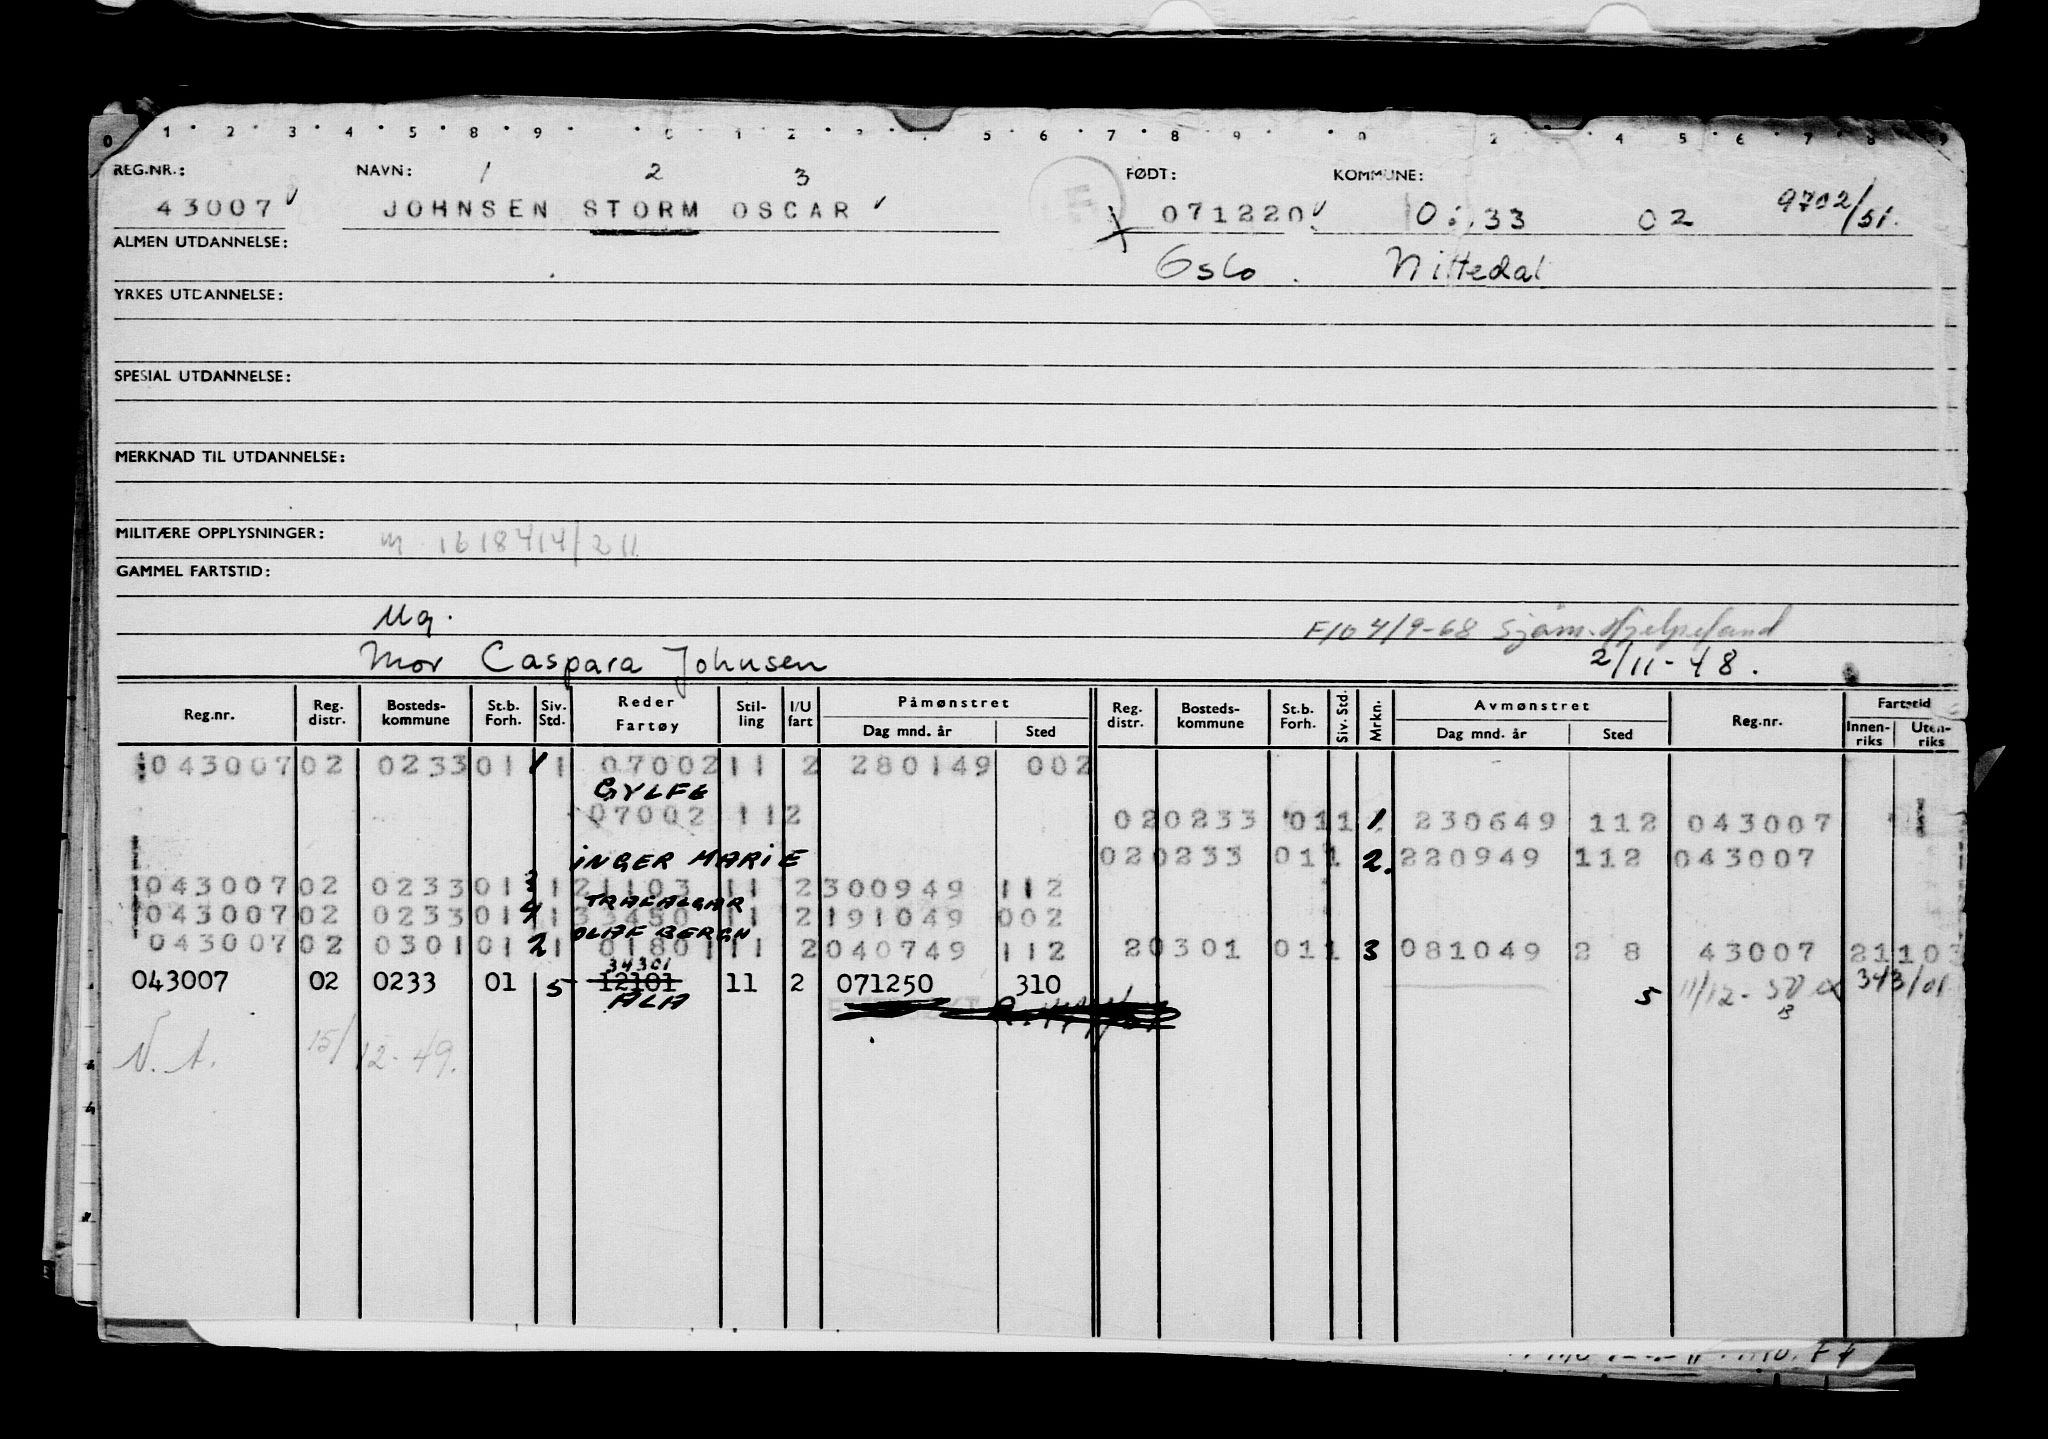 0 1 2 3 4 5 8 9 0 1 2 3 5 6 7 8 9 0 2 4 5 6 7 8 9
REG.NR.: NAVN: 1 2 3 FØDT: KOMMUNE:
43007 JOHNSEN STORM OSCAR F 071220 0 33 02 9702/51.
ALMEN UTDANNELSE:
Oslo. Nittedal
YRKES UTDANNELSE:
SPESIAL UTDANNELSE:
MERKNAD TIL UTDANNELSE:
MILITÆRE OPPLYSNINGER: m 1618414/211
GAMMEL FARTSTID:
Ug. F/O 4/9-68 Sjøm.
Mor Caspara Johnsen 2/11-48.
Reg.nr. Reg. distr. Bosteds- kommune St.b. Forh. Siv. Std. Reder Fartøy Stil- ling I/U fart Påmønstret Dag mnd. år Sted Reg. distr. Bosteds- kommune St.b. Forh. Siv. Std. Mrkn. Avmønstret Dag mnd. år Sted Reg.nr. Fartstid Innen- riks Uten- riks
043007 02 0233 01 1 1 07002 11 2 280149 002
GYLFE
07002 11 2 02 0233 01 1 1 230649 112 043007
INGER MARIE 02 0233 01 1 2. 220949 112 043007
043007 02 0233 01 3 1 21103 11 2 300949 112
TRAFALGAR
043007 02 0233 01 4 1 33450 11 2 191049 002
OLAF BERGH
043007 02 0301 01 2 1 01801 11 2 040749 112 2 0301 01 1 3 081049 2 8 43007 21103
34301
043007 02 0233 01 5 12101 11 2 071250 310 5 11/12-50 343/01
ALA
N.A. 15/12-49.